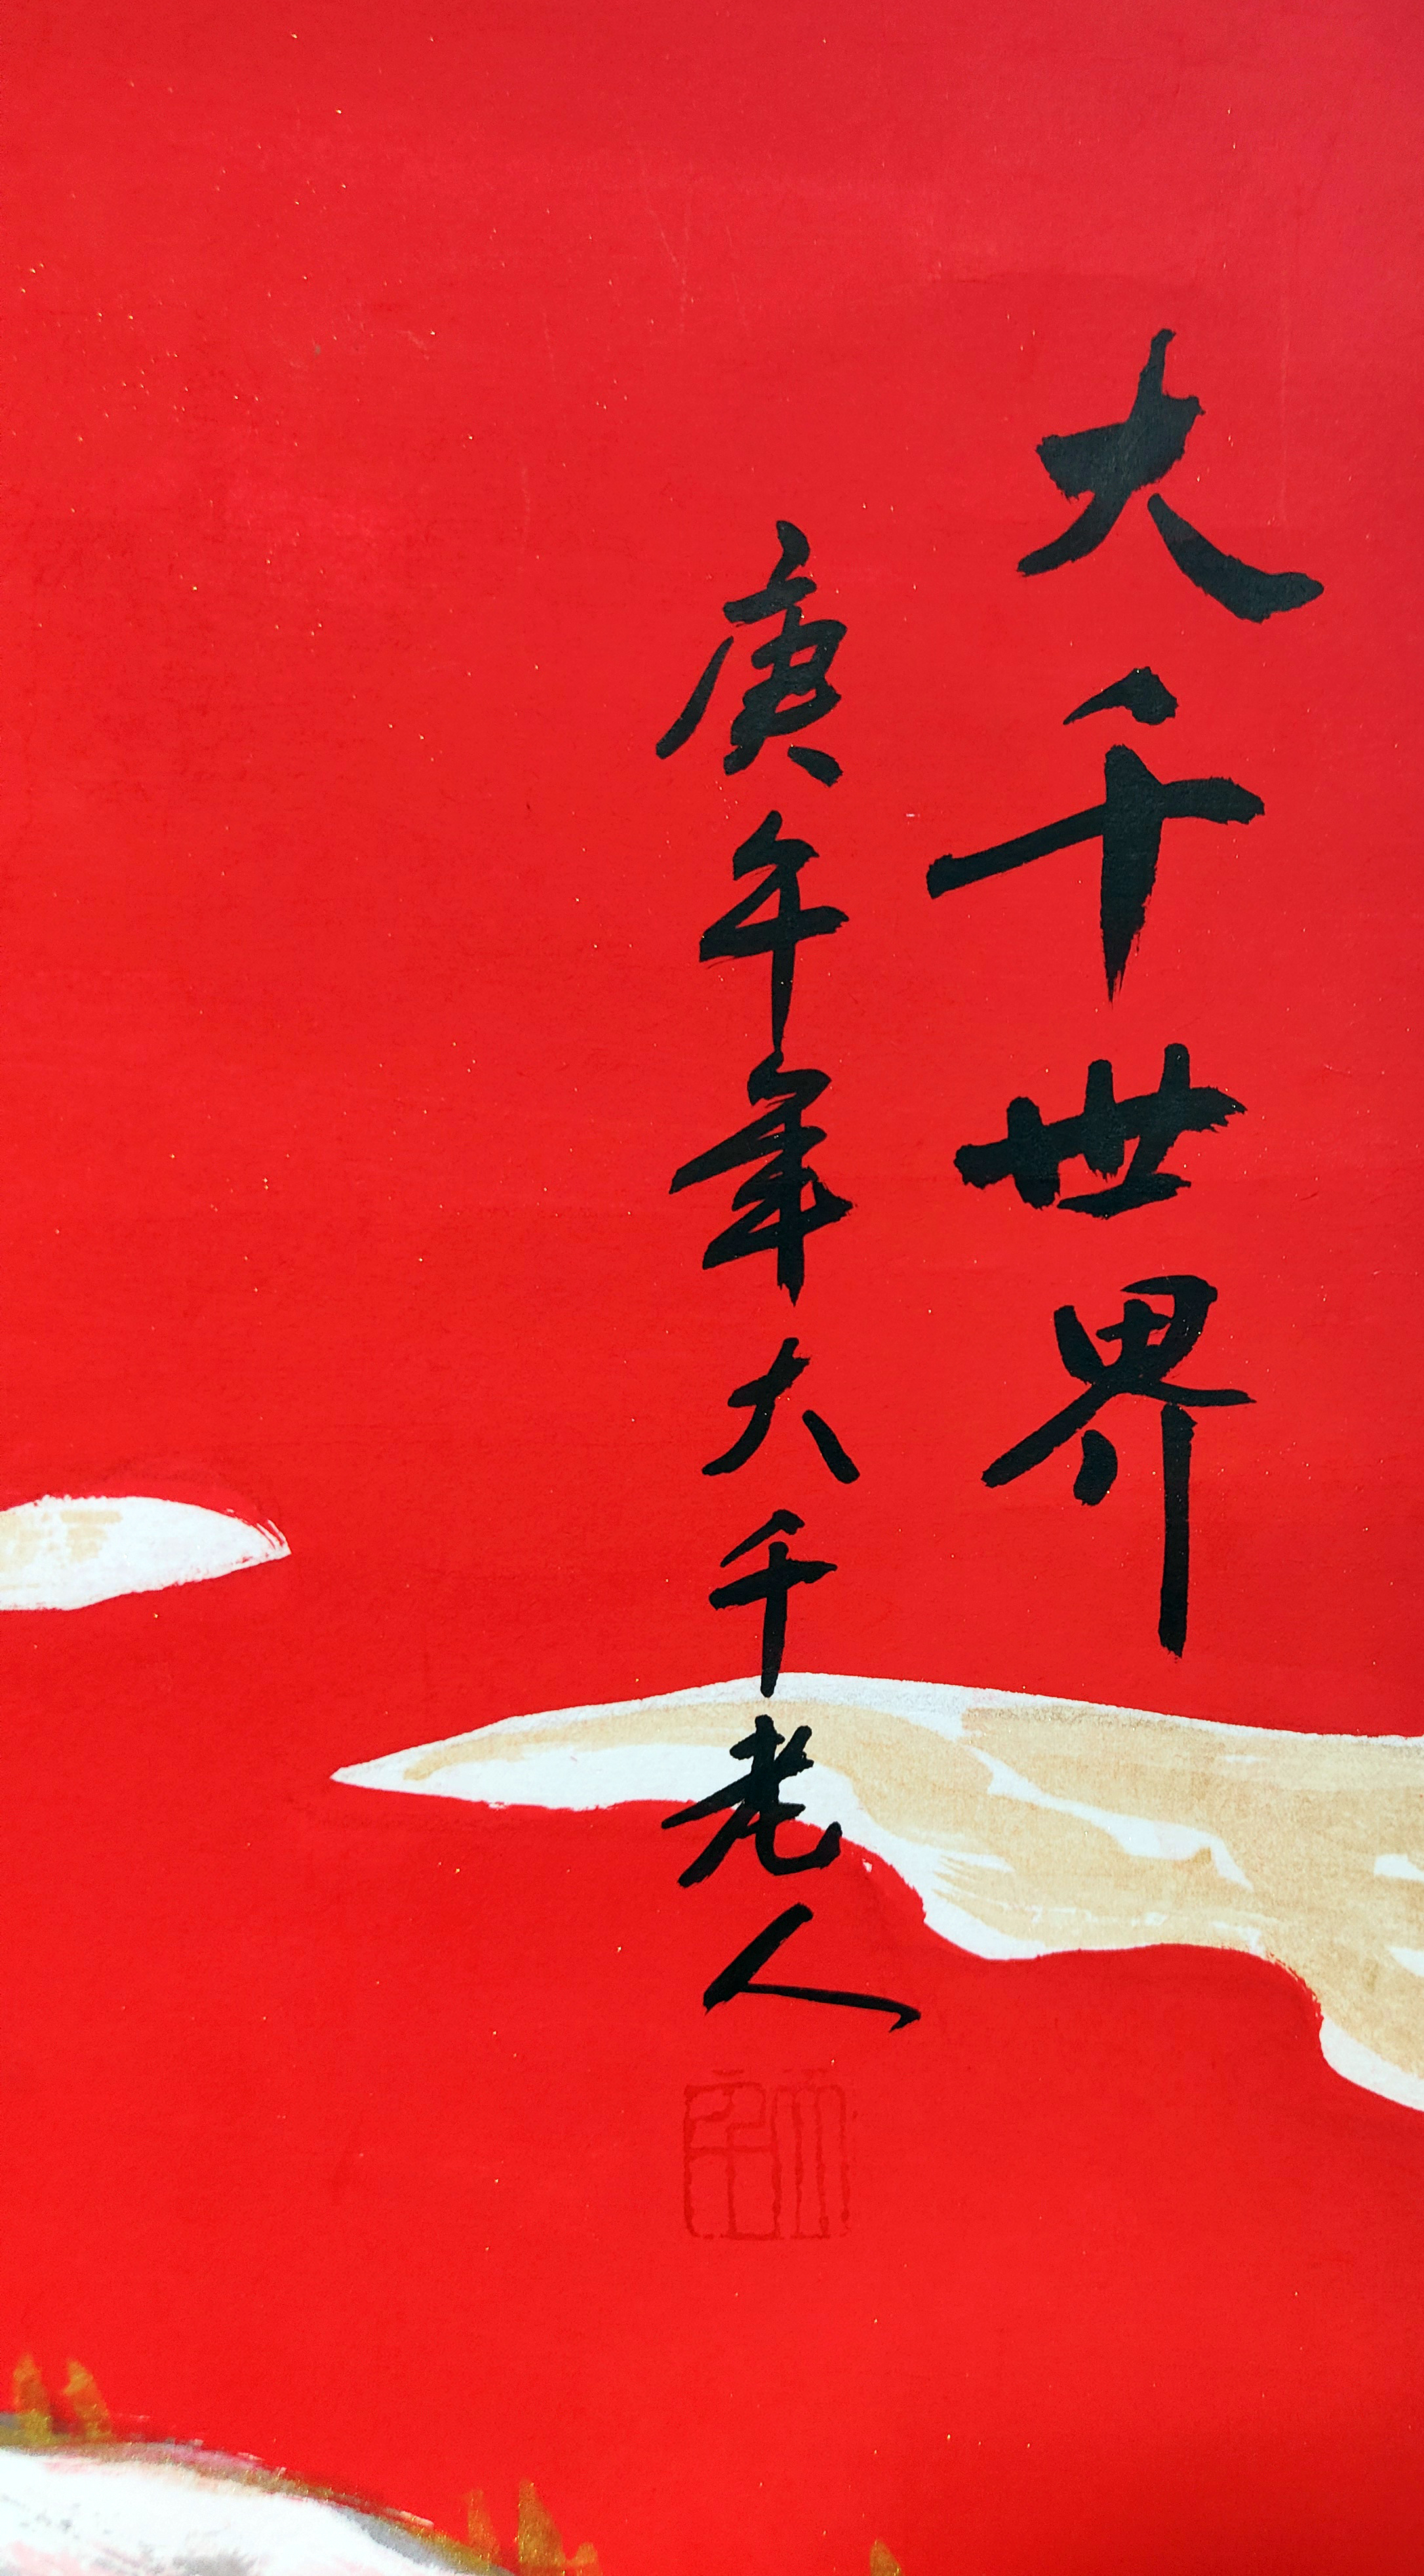 大千世界
庚午年大千老人